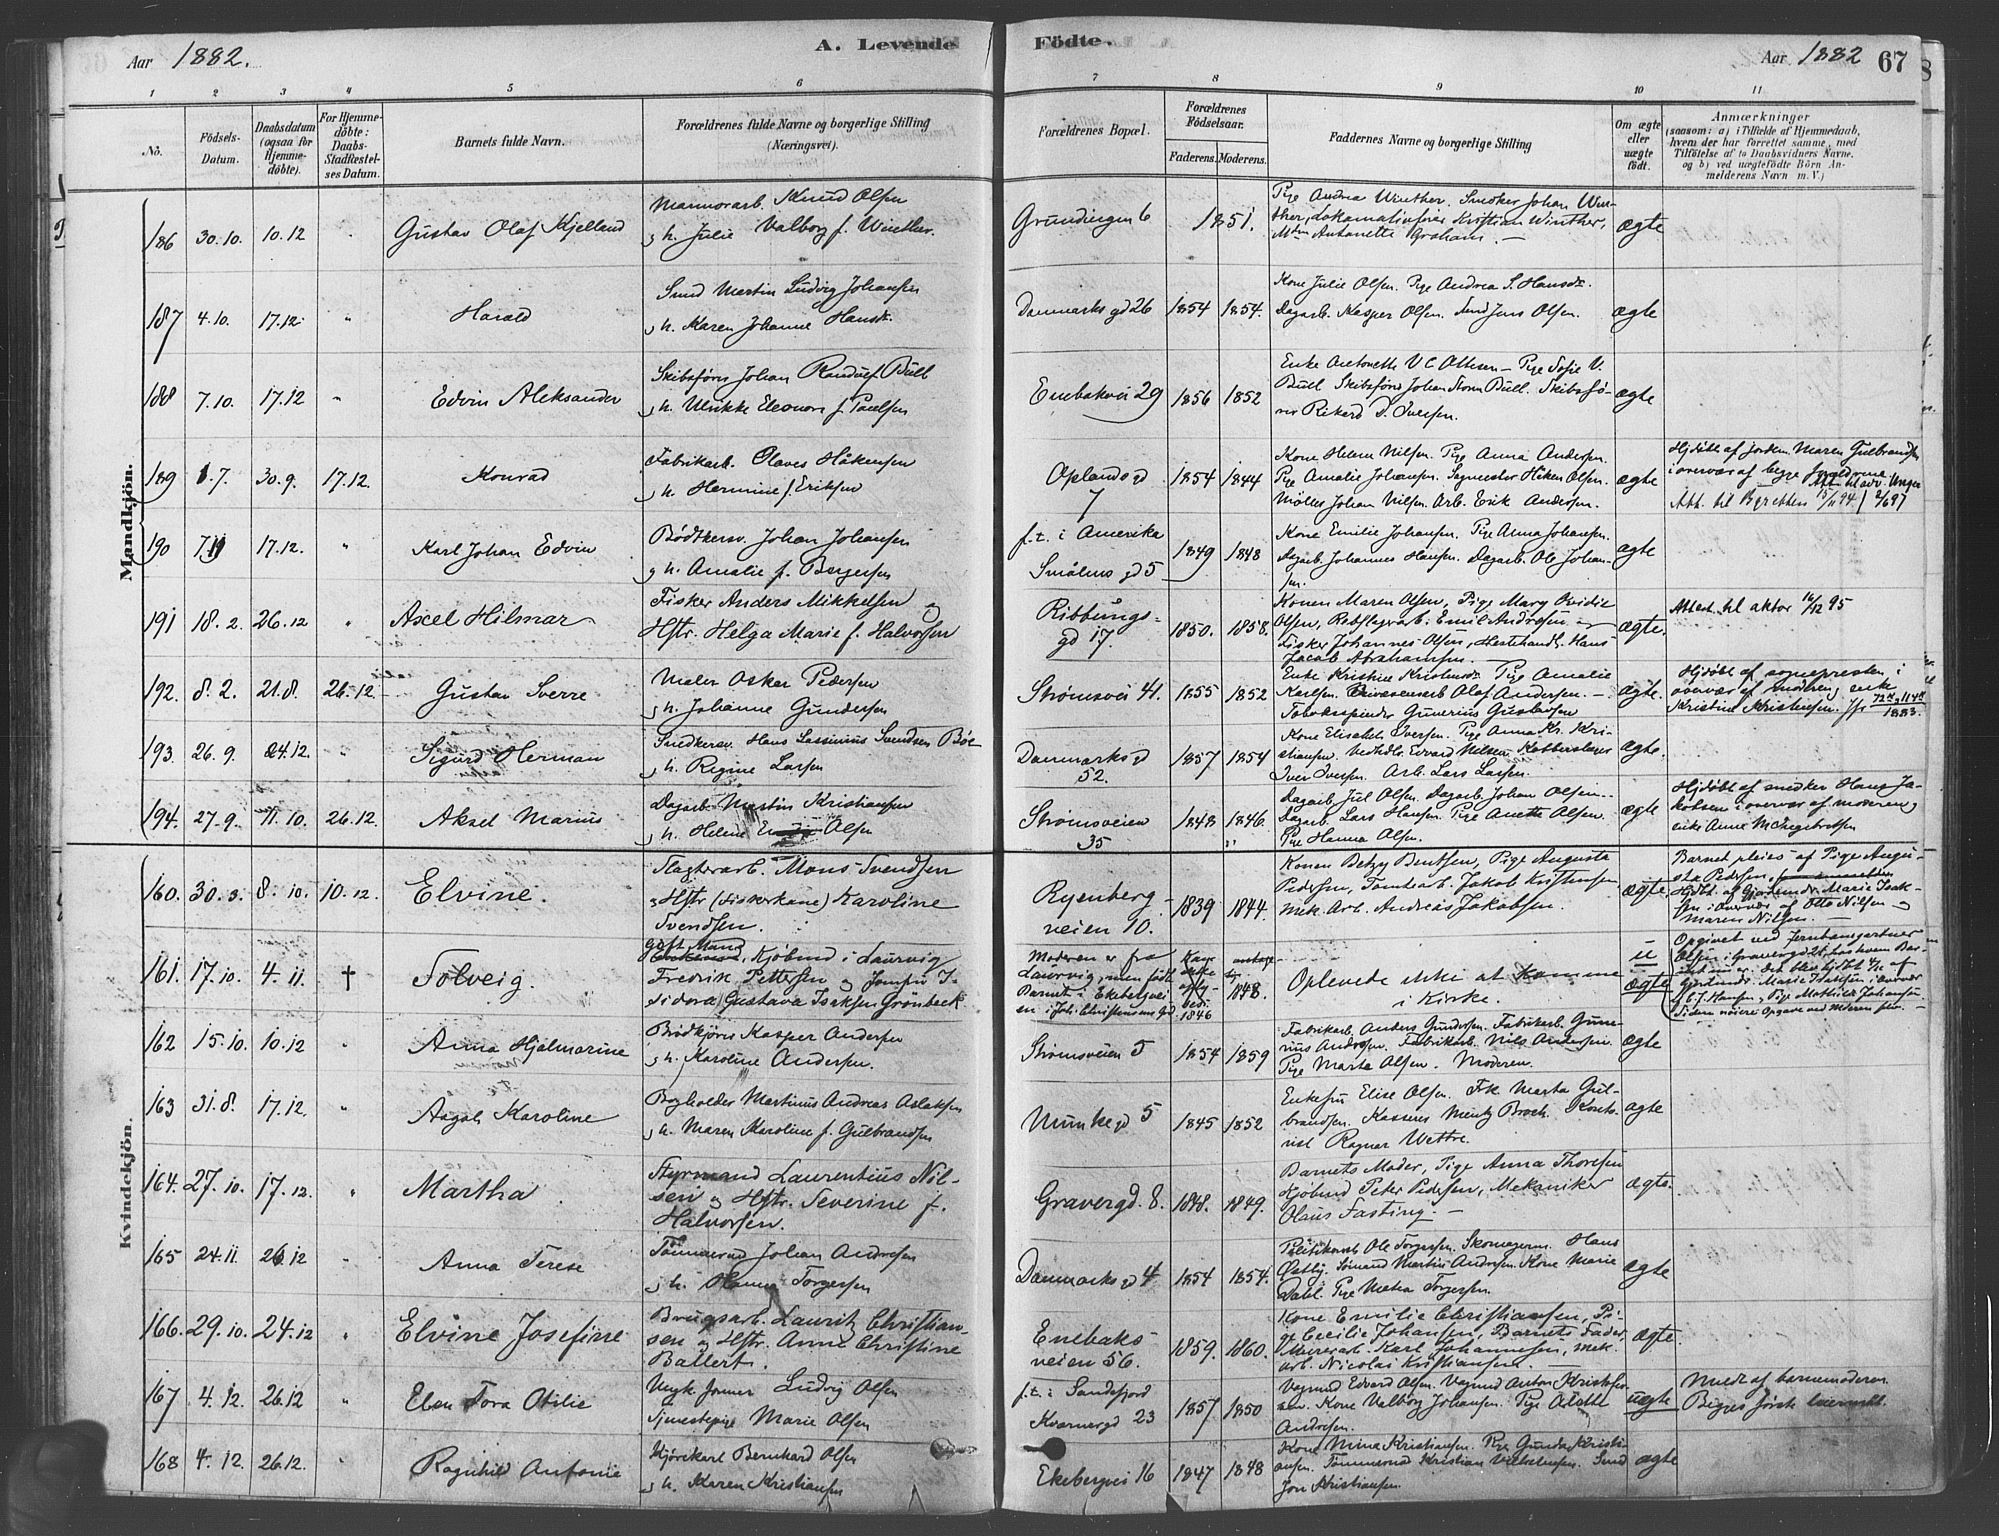 Aar 1882.
A. Levende Födte.
Aar 1882 67
1 2 3 4 5 6 7 8 9 10 11
No.
Födsels-Datum.
Daabsdatum (ogsaa for Hjemmedöbte).
For Hjemmedöbte: Daabs-Stadfæstelses Datum.
Barnets fulde Navn.
Forældrenes fulde Navne og borgerlige Stilling (Næringsvei).
Forældrenes Bopæl.
Forældrenes Födselsaar.
Faderens. Moderens.
Faddernes Navne og borgerlige Stilling
Om ægte eller uægte födt.
Anmærkninger
(saasom: a) i Tilfælde af Hjemmedaab, hvem der har forrettet samme, med Tilföielse af to Daabsvidners Navne, og b) ved uægtefödte Börn Anmelderens Navn m. V.)
Mandkjön.
186 30.10. 10.12 " Gustav Olaf Kjelland
Marmorarb. Knud Olsen
og h. Julie Valborg f. Winther.
Grundingen 6 1851.
Pige Andrea Winther. Smedker Johan Winther, Lokomotivfører Kristian Winther,
Mdm Antonette Graham. —
ægte
187 4.10. 17.12. " Harald
Smed Martin Ludvig Johansen
og h. Karen Johanne Hansd.
Danmarks gd 26 1854 1854.
Kone Julie Olsen. Pige Andrea S. Hansd.
Dagarb. Kasper Olsen. Smed Jens Olsen.
ægte
188 7.10. 17.12 " Edvin Aleksander
Skibsfører Johan Randulf Bull
og h. Ulrikke Eleonore f. Paulsen
Enebakvei 29 1856 1852
Enke Antonette V C Ottesen – Pige Sofie V.
Bull Skibsfører Johan Storm Bull. Skibsfører Rikard D. Iversen.
ægte
189 1.7. 30.9. 17.12. Konrad
Fabrikarb. Olaves Håkensen
og h. Hermine f. Eriksen
Oplandsgd 7 1854 1844
Kone Helene Nilsen. Pige Anna Andersen.
Pige Amalie Johansen. Sagmester Håken Olsen.
Møller Johan Nilsen. Arb. Erik Andersen.
ægte
Hjdøbt af jordm. Maren Gulbrandsen
i overvær af begge forældrene.
Att. til adv. Unger
Att. til Byretten 15/11 94. / 2/6 97
190 7.11 17.12. " Karl Johan Edvin
Bødtkersv. Johan Johansen
og h. Amalie f. Bergersen
f.t. i Amerika
Smålens gd 5 1849 1848
Kone Emilie Johansen. Pige Anna Johansen.
Dagarb. Johannes Hansen. Dagarb. Ole Johansen.
ægte
191 18.2. 26.12 " Axel Hilmar
Fisker Anders Mikkelsen og
Hstr. Helga Marie f. Halvorsen
Ribbungs-
gd 17. 1850. 1858.
Konen Maren Olsen, Pige Mary Ovidie
Olsen, Rebslagerarb. Emil Andresen –
Fisker Johannes Olsen, Hestehandl. Hans
Jacob Abrahamsen. —
ægte.
Attest. til aktor 16/12 95
192. 8.2. 21.8. 26.12. Gustav Sverre
Maler Oskar Pedersen
og h. Johanne Gundersen
Strømsvei 41. 1855 1852
Enke Kristine Kristensd. Pige Amalie
Karlsen. Olaf Andersen. –
Tobakspinder Gunerius Gustavsen
ægte.
Hjdøbt af sognepresten i
overvær af moderen og enke
Kristine Kristensen.
1883.
193. 26.9. 24.12. " Sigurd Herman
Snedkersv. Hans Lassinius Svendsen Bøe
og h. Regine Larsen
Danmarksgd 52. 1857 1854
Kone Elisabeth Iversen. Pige Anna Kr. Kristiansen. Vedhdlr. Edvard Nilsen. Kobberslager
Iver Iversen. Arb. Lars Larsen.
ægte.
194. 27.9. 11.10. 26.12. Aksel Marius
Dagarb. Martin Kristiansen
og h. Helene Olsen
Strømsveien 35 1848 1846.
Dagarb. Olsen. Dagarb. Johan Olsen.
Dagarb. Lars Hansen. Pige Anette Olsen.
Pige Hanna Olsen.
ægte
Hjdøbt af snedker Hans Jakobsen i overvær af moderen og
enke Anne M Engebretsen
Kvindekjön.
160. 30.3. 8.10. 10.12. Elvine.
Slagterarb. Mons Svendsen
og Hstr (Fiskerkone) Karoline
Svendsen.
Ryenberg-
veien 10. 1839 1844.
Konen Betzy Bentsen, Pige Augusta
Pedersen, Tomtearb. Jakob Kristiansen,
Mek. Arb. Andreas Jakobsen.
ægte
Barnet pleies af Pige Augusta Pedersen,
Hjdbt. af Gjordemdr. Marie Isaksen i Overvær af Otto Nilsen og
Maren Nilsen. —
161. 17.10. 4.11. † Solveig.
Gift Mand Kjøbmd i Laurvig
Fredrik Pettersen og Jomfru Isidora Gustava Isaksen Grønbeck
Moderen er fra
Laurvig, men født
Barnet i Ekebergveien i Joh. Christiansens Gd.
1846 1848.
Oplevede ikke at komme
i Kirke.
u ægte
Opgivet ved Jernbanegartner
Olsen i Gravergd 26, hos hvem Barnet nu er. Det blev hjdbt 4/11 af
Gjordemdr. Marie Isaksen i Overvær
af C. J. Hansen og Pige Mathilde Johansen.
Siden nøiere Opgave ved Moderen selv. —
162 15.10. 10.12 " Anna Hjalmarine
Brødkjører Kasper Andersen
og h. Karoline Andersen.
Strømsveien 5 1854 1859
Fabrikarb. Anders Gundersen. Fabrikarb. Gunerius Andersen. Fabrikarb. Nils Andersen.
Pige Marta Olsen. Moderen.
ægte
163 31.8. 17.12. " Aagot Karoline
Bogholder Martinus Andreas Aslaksen
og h. Maren Karoline f. Gulbrandsen
Munkegd 5 1845 1852
Enkefru Elise Olsen. Frk Marta Gulbrandsen. Kasserer Mentz Broch. Kontorist Ragnar Wettre.
ægte
164. 27.10. 17.12. " Martha
Styrmand Laurentius Nilsen og Hstr. Severine f.
Halvorsen.
Gravergd. 8. 1848. 1849.
Barnets Moder, Pige Anna Thoresen
Kjøbmd Peter Pedersen, Mekaniker
Olaus Fasting —
ægte.
165 24.11 26.12 " Anna Terese
Tømmermd Johan Andresen
og h. Hanna Torgersen
Danmarksgd 4 1854 1854.
Politikonst. Ole Torgersen. Skomagerm. Hans
Østby. Sømand Martin Andersen. Kone Marie
Dahl. Pige Metea Torgersen.
ægte
166. 29.10. 24.12 " Elvine Josefine
Brugsarb. Lauritz Christiansen og Hstr. Anne Christine
Ballert.
Enebaks-
veien 56. 1859. 1860.
Kone Emilie Christiansen, Pige Cecilie Johansen, Barnets Fader,
Murerarb. Karl Johannesen, Mek.
arb. Nicolai Kristiansen. —
ægte.
167 4.12. 26.12 " Ellen Tora Otilie
Ungk. Former Ludvig Olsen
Tjenestepige Marie Olsen
f.t. i Sandefjord
Kværnergd 23 1857 1850
Vognmd Edvard Olsen. Vognmd Anton Kristofersen. Kone Valborg Johansen. Pige
Andresen.
uægte
Meldt af barnemoderen.
Begges første leiermål.
168 4.12. 26.12. " Ragnhild Antonie
Kjørekarl Bernhard Olsen
og h. Karen Kristiansen
Ekebergvei 16 1847 1848
Kone Mina Kristiansen. Pige Gunda Kristiansen. Tømmermd Kristian Vilhelmsen. Smed
Jon Kristiansen.
ægte